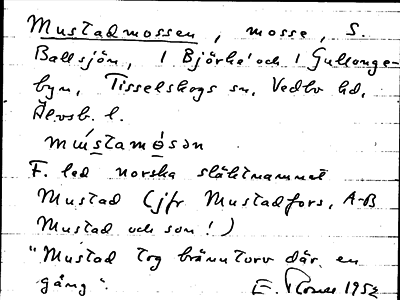 Mustadmossen, mosse, S.
Ballsjön, i Björke' och i Gullunge-
byn, Tisselskogs sn, Vedbo hd,
Älvsb. l.
mústamòsən
F. led norska släktnamnet
Mustad (jfr Mustadfors, A-B
Mustad och son!)
"Mustad tog bränntorv där en
gång". E. 1952